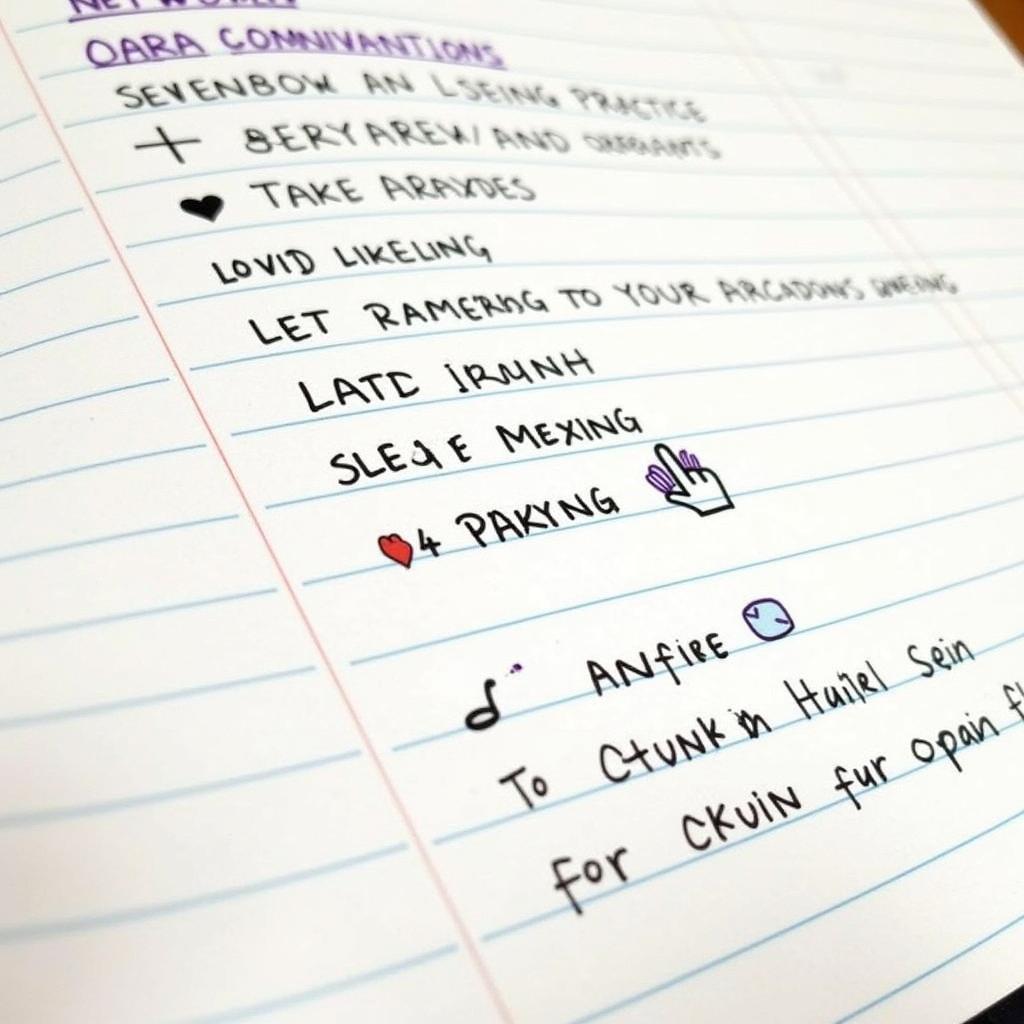 OARA COMNIVANTIONS
SEVENBOW AN LSEING PRACTICE
BERYAREW/AND
TAKE ARAXDES
LOVID LIKELING
LET RAMERING TO YOUR ARCADONS
LATC IRUNH
SLEAE MEXING
4 PAKYNG
ANfiRE
To CTUNK in Huijel Sein
For CKUIN fur opain